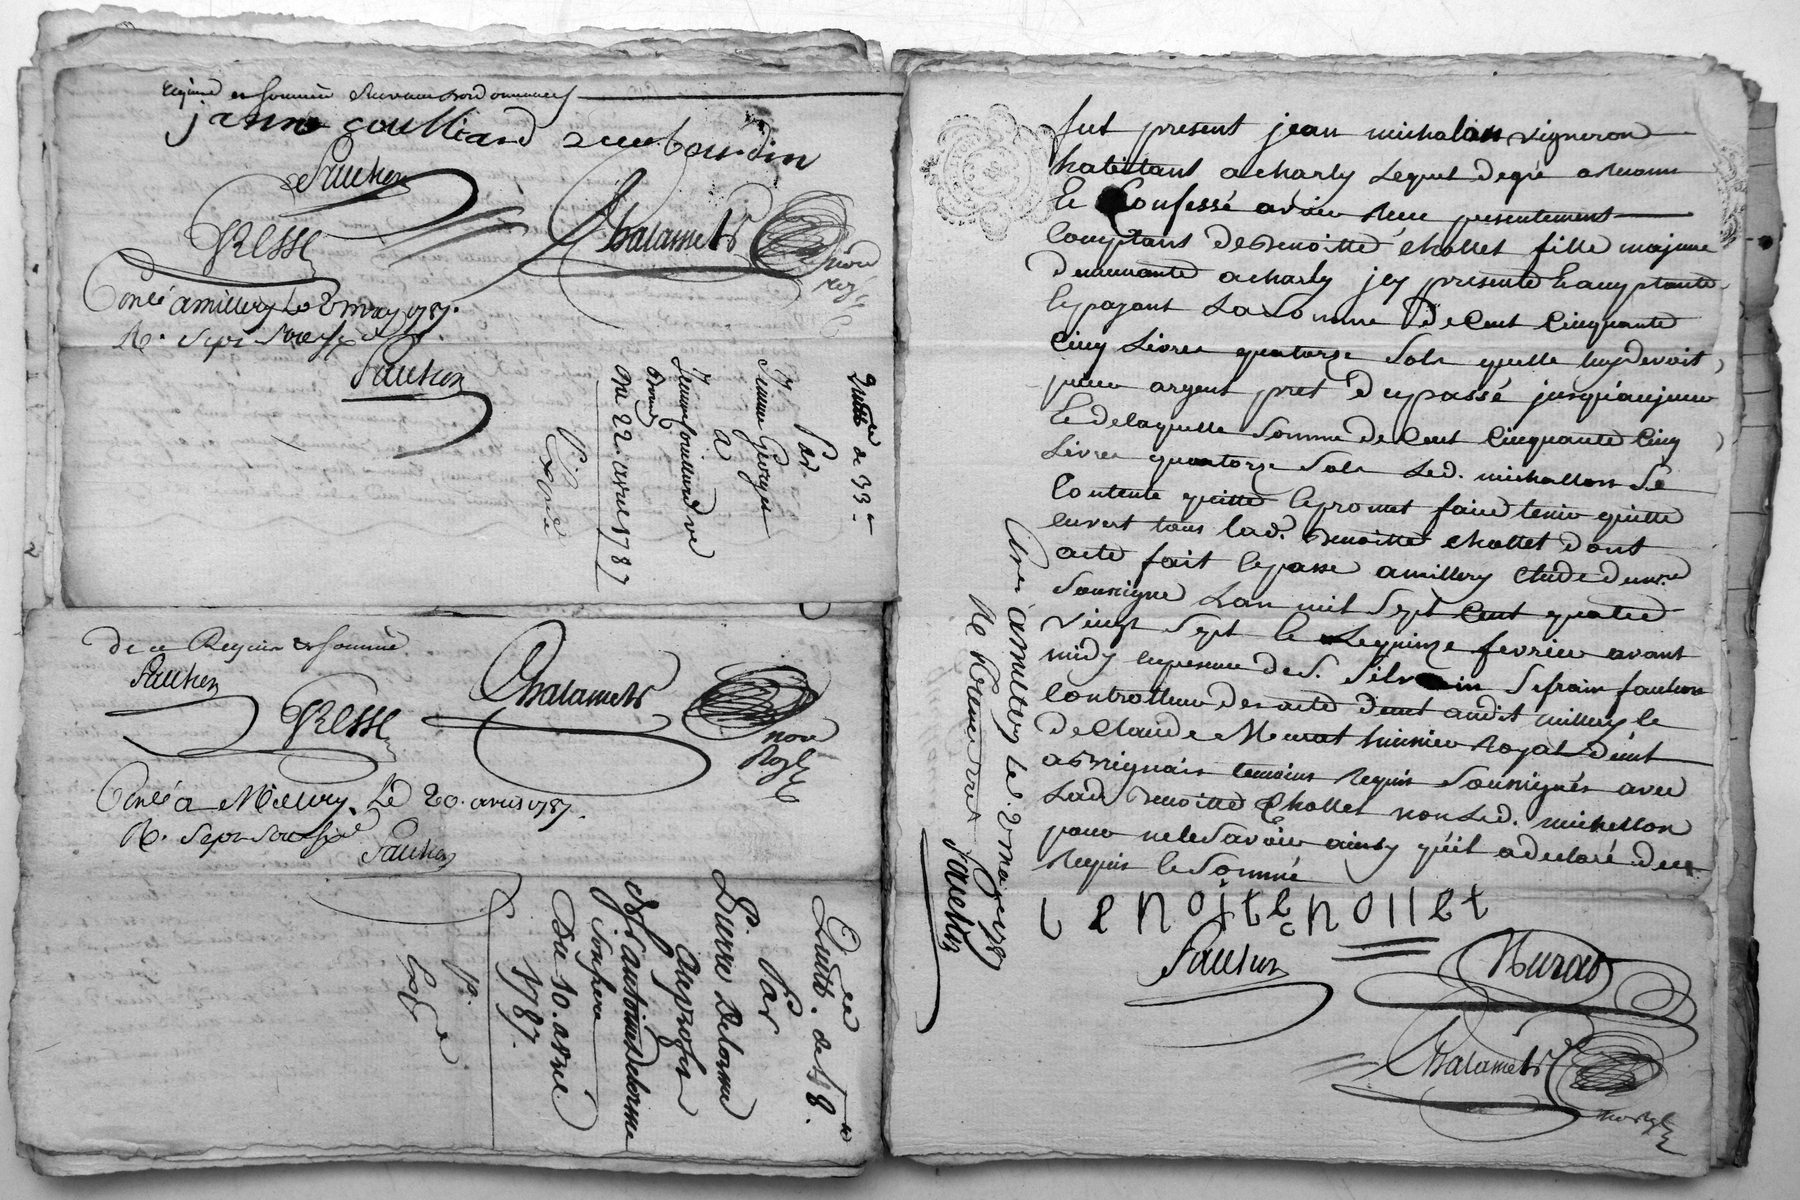 requis et sommé suivant l'ordonnance
janne coulliard 2 me bourdin
Fauchon
GResse
Chalamets
nore
Conlé a millery le 2 may 1787.
R. sept sols
Fauchon
Quittce de 33 tt
Par
Jeanne Georges
a
Jeanne Couilliard ve
Du 22. avril 1787
de ce Requis & sommé
Fauchon
GResse
Chalamets
nore
Royl
Conlé a Millery. Le 20. avril 1787.
R. sept sols
Fauchon
Quittce. de 48 tt.
Par
Pierre Delorme
au profit
d'antoine Delorme
son frere
Du 10. avril
1787.
fut present jean michalon vigneron
habitant a charly lequel de gré a reconnu
et Confessé avoir reçu presentement
Comptant de Benoitte chollet fille majeure
demeurante a charly jcy presente et acceptante
et payant La Somme de Cent Cinquante
Cinq Livres quatorze Sols quelle luy devoit
pour argent pret du passé jusqu'aujourd
Et de laquelle Somme de Cent Cinquante Cinq
Livres quatorze Sols Led. michallon Se
Contente quitte et promet faire tenir quitte
envers tous lad. Benoitte chollet dont
acte fait et passé a millery Etude du nre
Soussigné Lan mil Sept Cent quatre
vingt Sept le quinze fevrier avant
midy en presence de S. Silvain Sefrain fauchon
Controlleur des actes audit millery et
de Claude Murat huissier Royal
a Brignais temoins Requis Soussignés avec
Lad. Benoitte Chollet non Led. michallon
pour ne le Savoir ainsy qu'il a declaré de ce
Requis et Sommé
Benoite chollet
Fauchon
Murat
Chalamets
Conlé a millery le 2 mars 1787
Fauchon